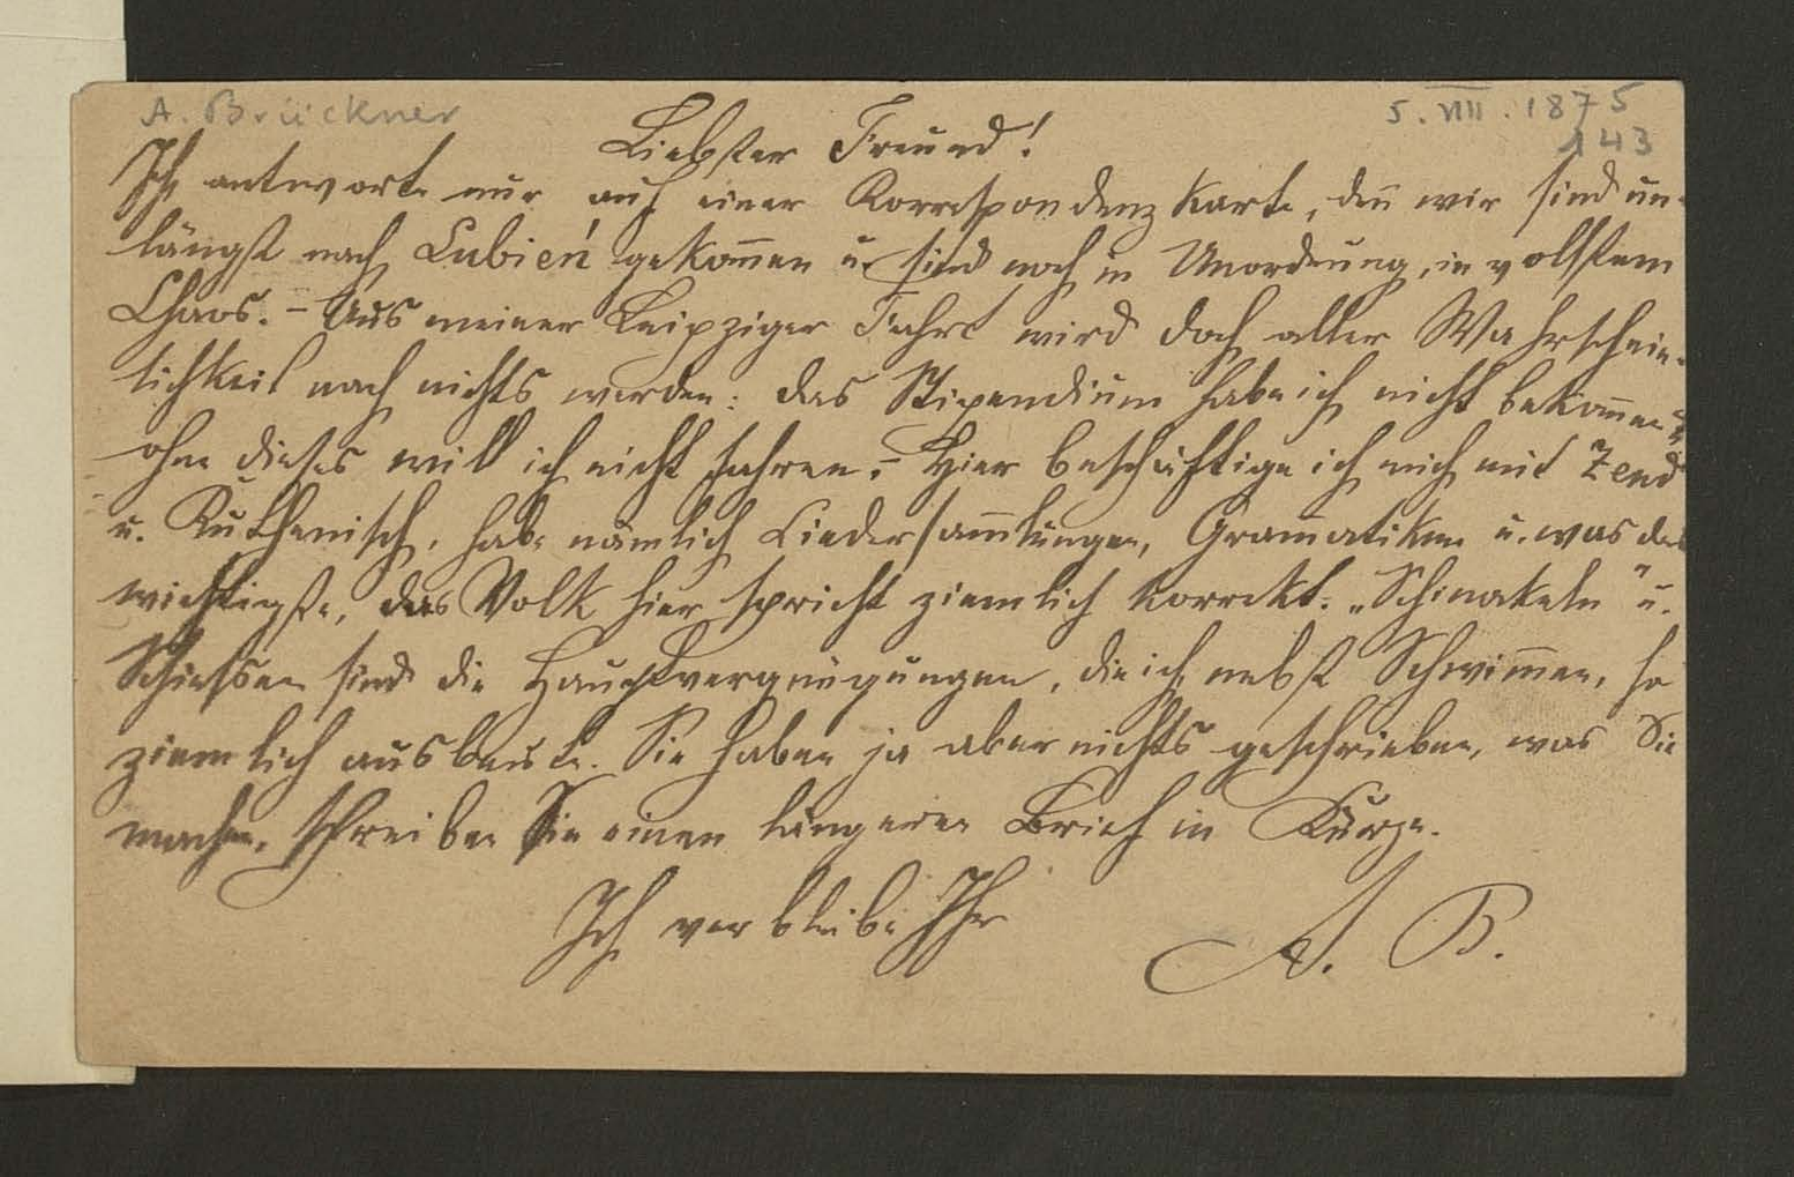 A. Brückner
5. VIII. 1875
143
Liebster Freund!
Ich antworte nur auf einer Korrespondenzkarte, deñ wir sind un-
längst nach Lubień gekom̄en u. sind noch in Unordnung, in vollstem
Chaos. – Aus meiner Leipziger Fahrt wird doch aller Wahrschein-
lichkeit nach nichts werden: das Stipendium habe ich nicht bekom̄en u.
ohne dieses will ich nicht fahren. – Hier beschäftige ich mich mit Zend
u. Ruthenisch, habe nämlich Liedersam̄lungen, Gram̄atiken u. was das
wichtigste, das Volk hier spricht ziemlich korrekt. „Schinakeln" u.
Schiessen sind die Hauptvergnügungen, die ich, nebst Schwim̄en, so
ziemlich ausbeute. Sie haben ja aber nichts geschrieben, was Sie
machen, schreiben Sie einen längeren Brief in Kürze.
Ich verbleibe Ihr
A. B.